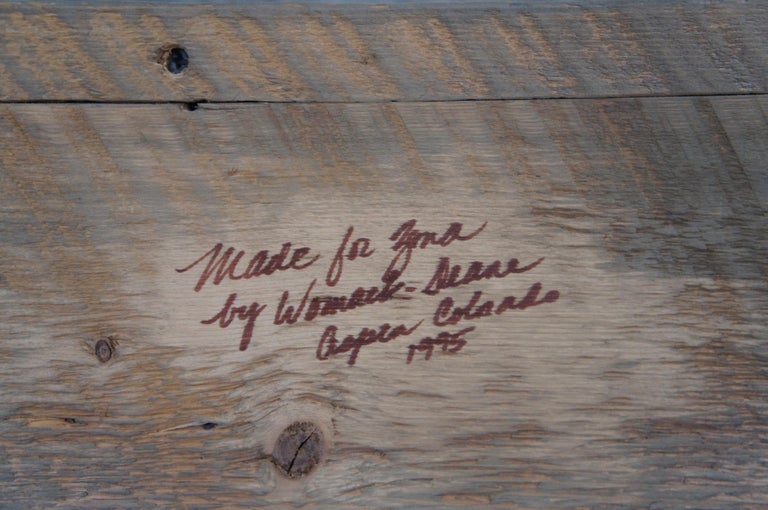 Made for Zona
by Womack-Deane
Aspen Colorado
1995